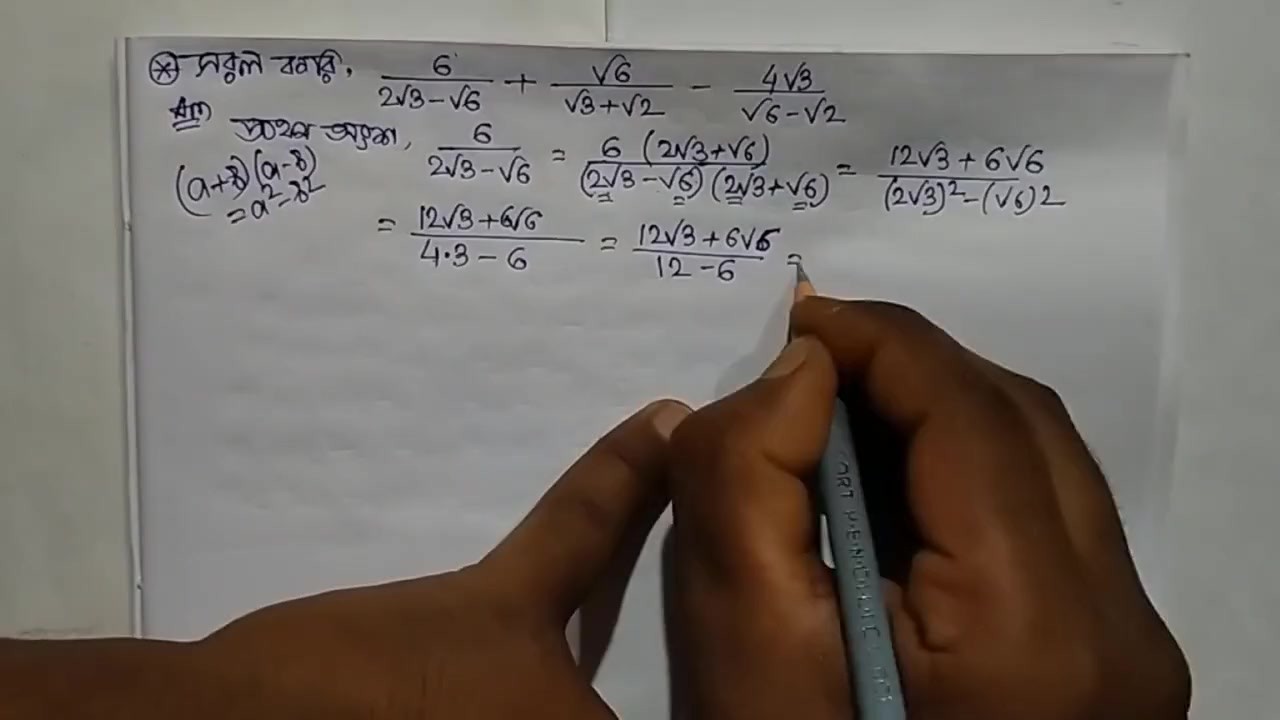 ⊛ সরল করি, 6/(2√3-√6) + √6/(√3+√2) - 4√3/(√6-√2)
Ans প্রথম অংশ, 6/(2√3-√6) = 6(2√3+√6)/(2√3-√6)(2√3+√6) = (12√3+6√6)/((2√3)²-(√6)2)
(a+b)(a-b)
=a²-b²
= (12√3+6√6)/(4·3-6) = (12√3+6√6)/(12-6) =